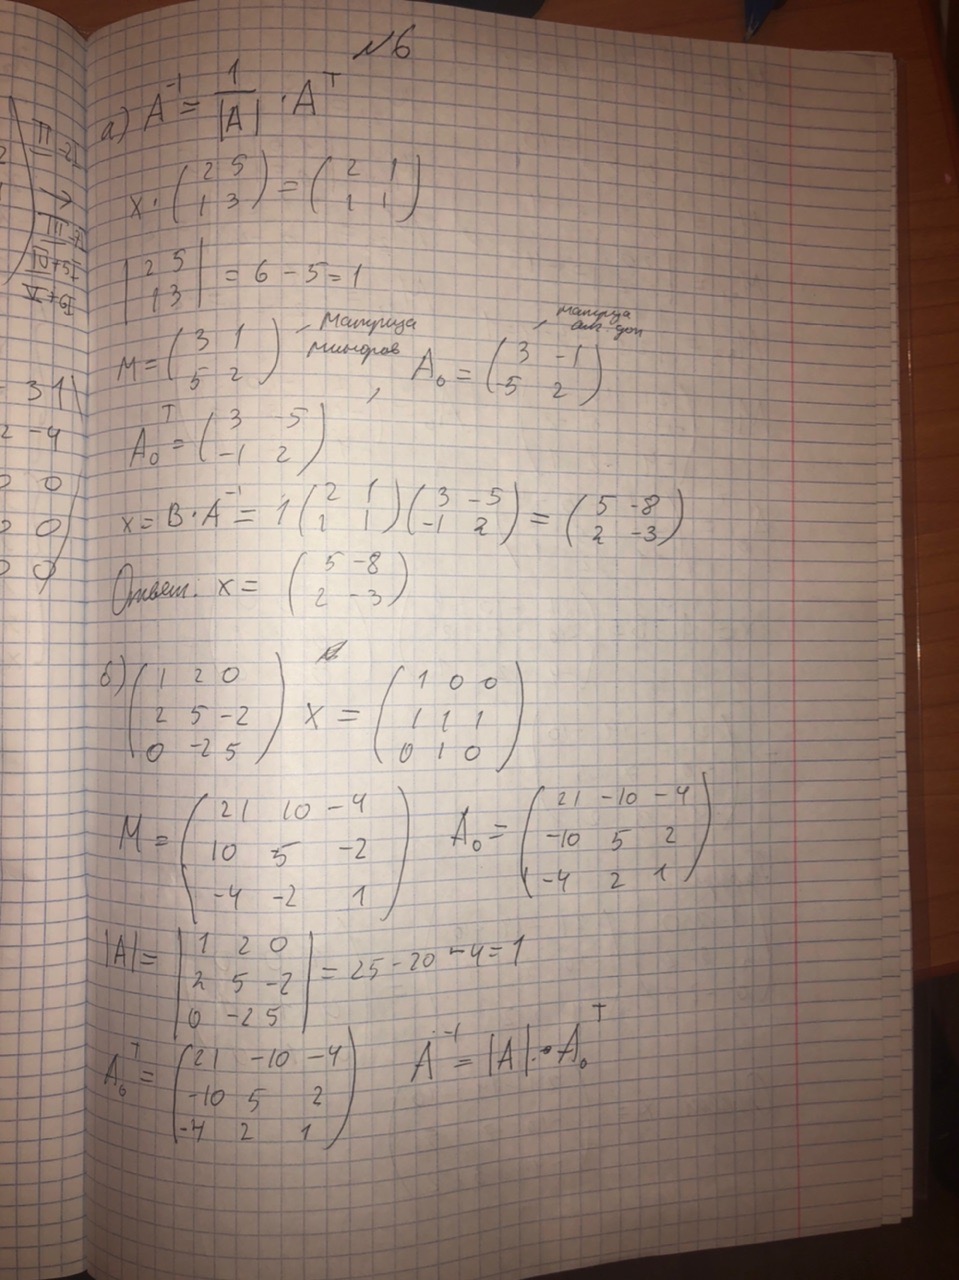 №6
а) A⁻¹ = 1/|A| · Aᵀ
x · (2 5; 1 3) = (2 1; 1 1)
|2 5; 1 3| = 6 - 5 = 1
M = (3 1; 5 2), матрица миноров, A₀ = (3 -1; -5 2), матрица алг. доп
A₀ᵀ = (3 -5; -1 2)
x = B · A⁻¹ = 1 (2 1; 1 1)(3 -5; -1 2) = (5 -8; 2 -3)
Ответ. x = (5 -8; 2 -3)
б) (1 2 0; 2 5 -2; 0 -2 5) x = (1 0 0; 1 1 1; 0 1 0)
M = (21 10 -4; 10 5 -2; -4 -2 1) A₀ = (21 -10 -4; -10 5 2; -4 2 1)
|A| = |1 2 0; 2 5 -2; 0 -2 5| = 25 - 20 - 4 = 1
A₀ᵀ = (21 -10 -4; -10 5 2; -4 2 1) A⁻¹ = |A| · A₀ᵀ
II-2I
→
IV+5I
V+6I
3 1
-4
0
0
0